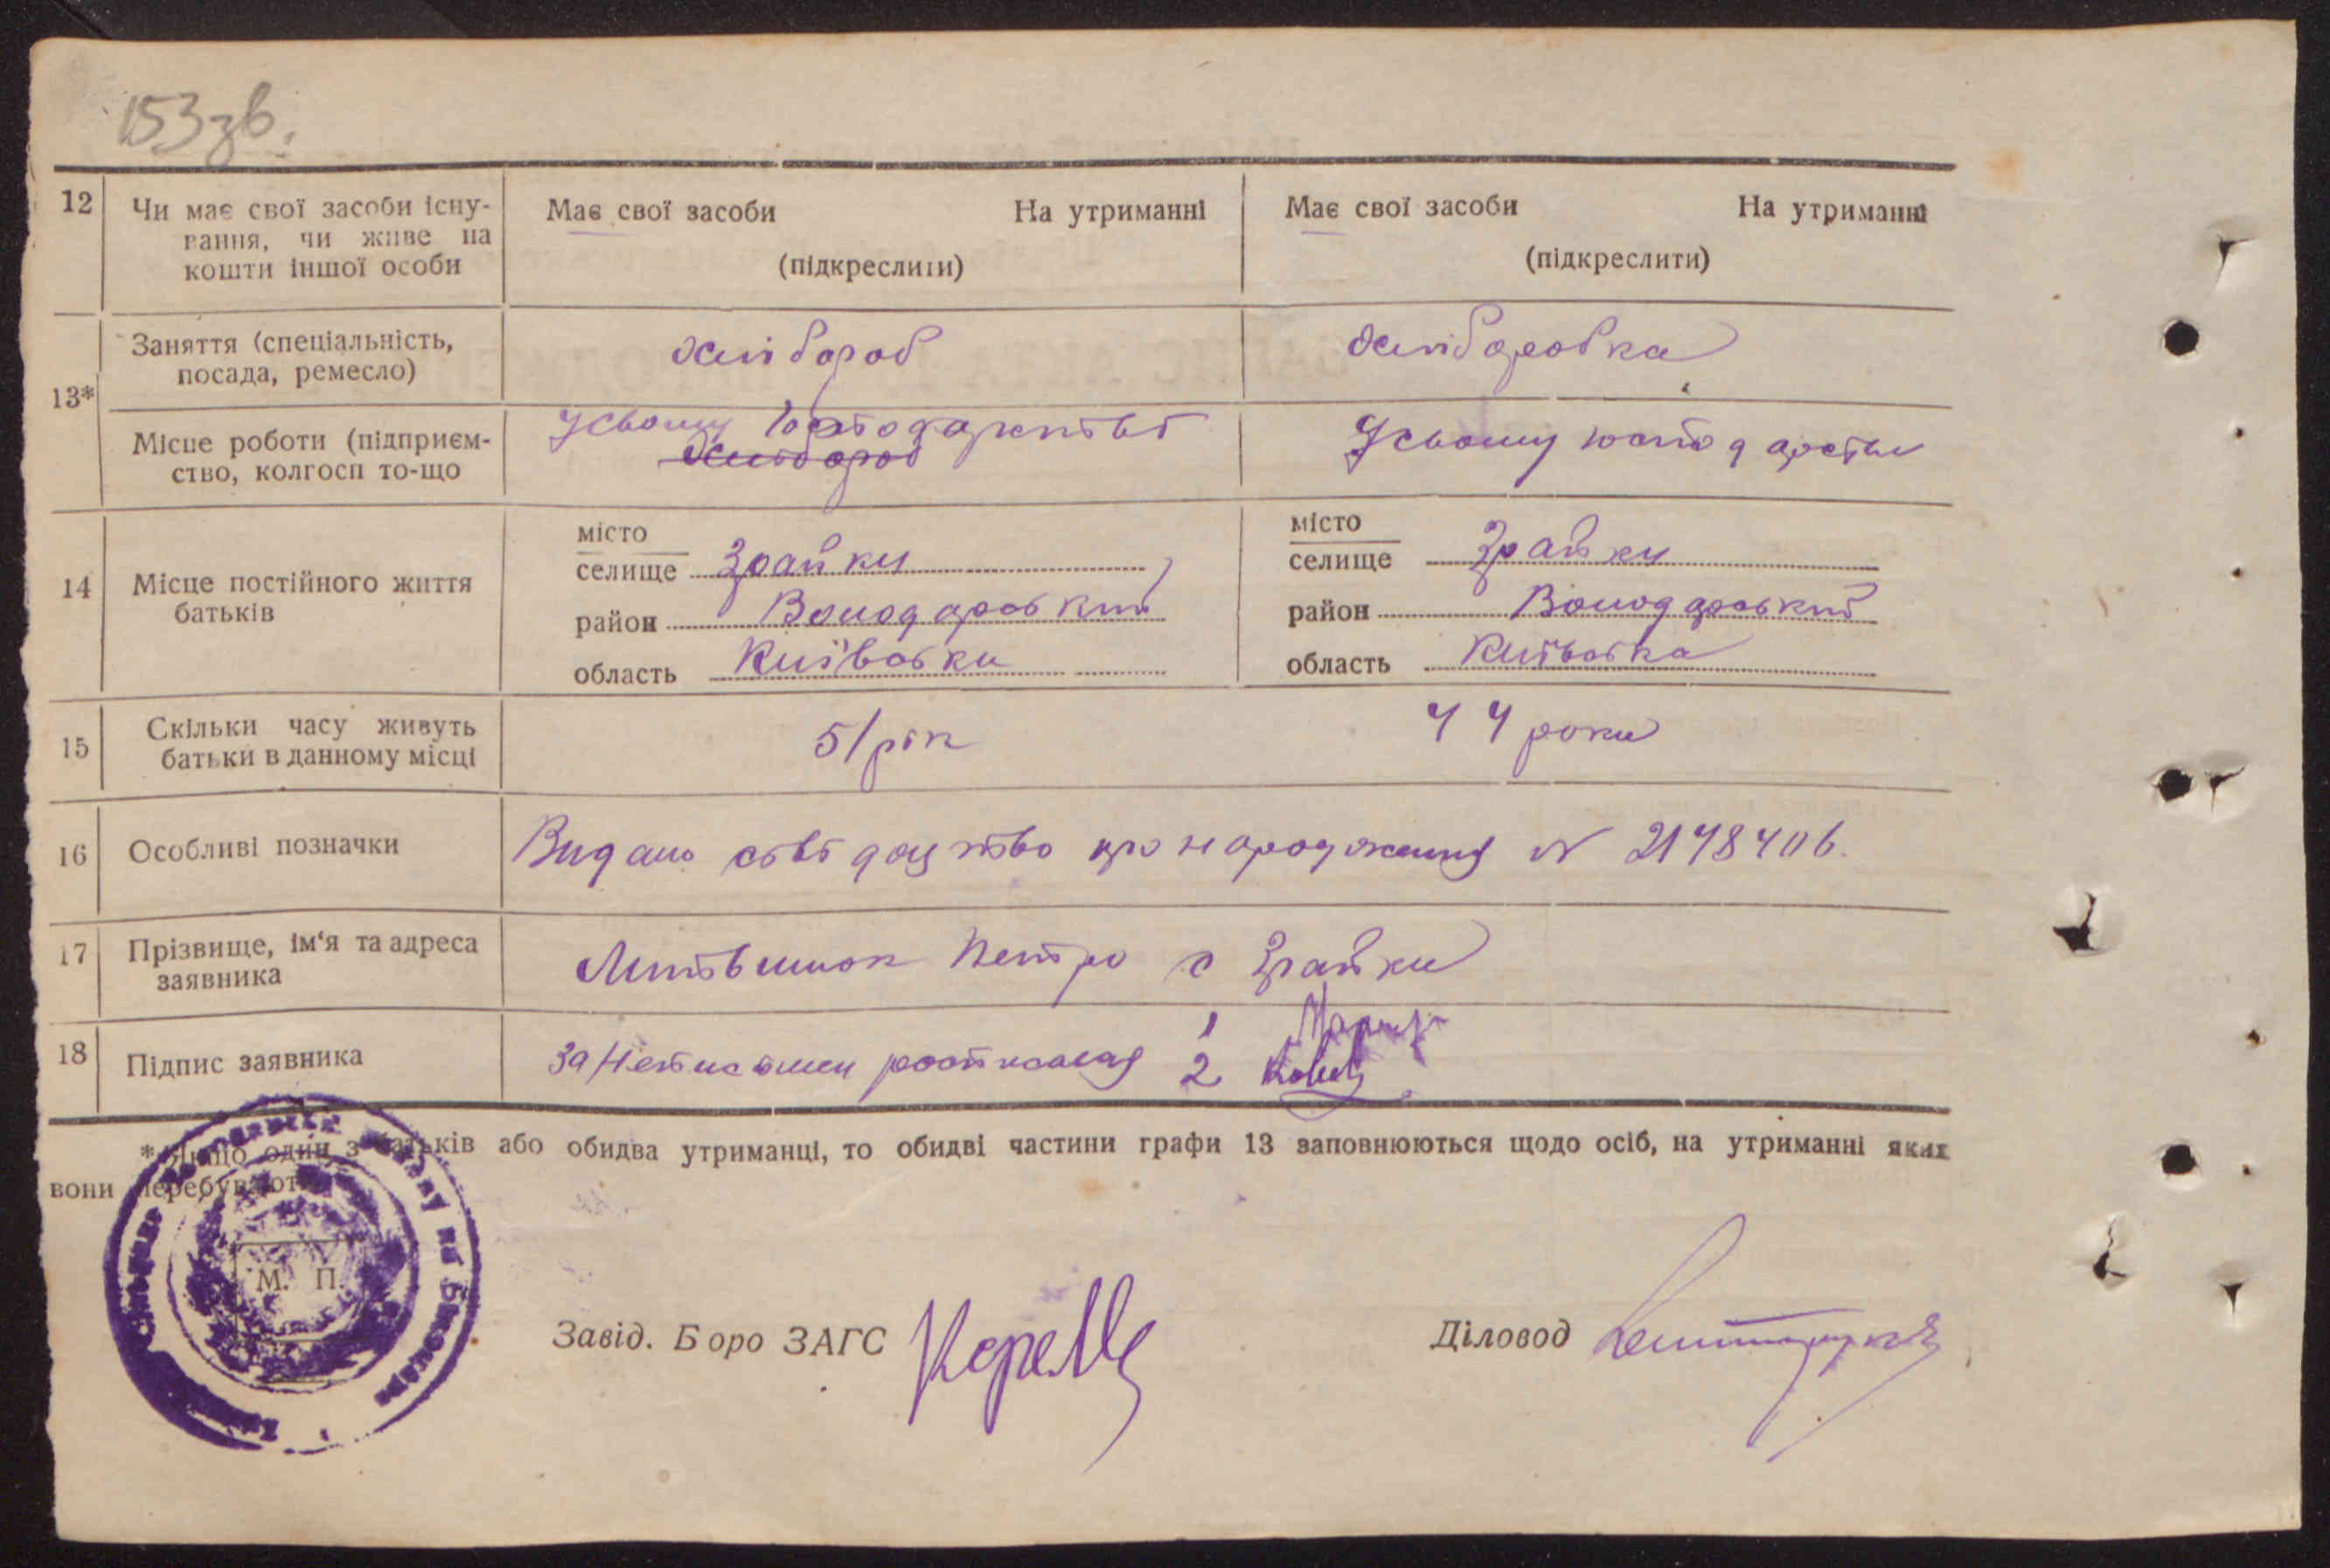 153зв.
12 Чи має свої засоби існу-
вання, чи живе на
кошти іншої особи
Має свої засоби На утриманні
(підкреслити)
Має свої засоби На утриманні
(підкреслити)
13*
Заняття (спеціальність,
посада, ремесло)
хлібороб
хліборобка
Місце роботи (підприєм-
ство, колгосп то-що
Усвому господарстві
хлібороб
Усвому господарстві
14 Місце постійного життя
батьків
місто
селище Зрайки
район Володарський
область Київська
місто
селище Зрайки
район Володарський
область Київська
15 Скільки часу живуть
батьки в данному місці
51 рік
44 роки
16 Особливі позначки
Видано свідоцтво про народження N 2148406.
17 Прізвище, ім'я та адреса
заявника
Литвинюк Петро с Зрайки
18 Підпис заявника
За неписьмен росписалась 1
2
* Якщо один з батьків або обидва утриманці, то обидві частини графи 13 заповнюються щодо осіб, на утриманні яких
вони перебувають
М. П.
Завід. Б оро ЗАГС
Діловод